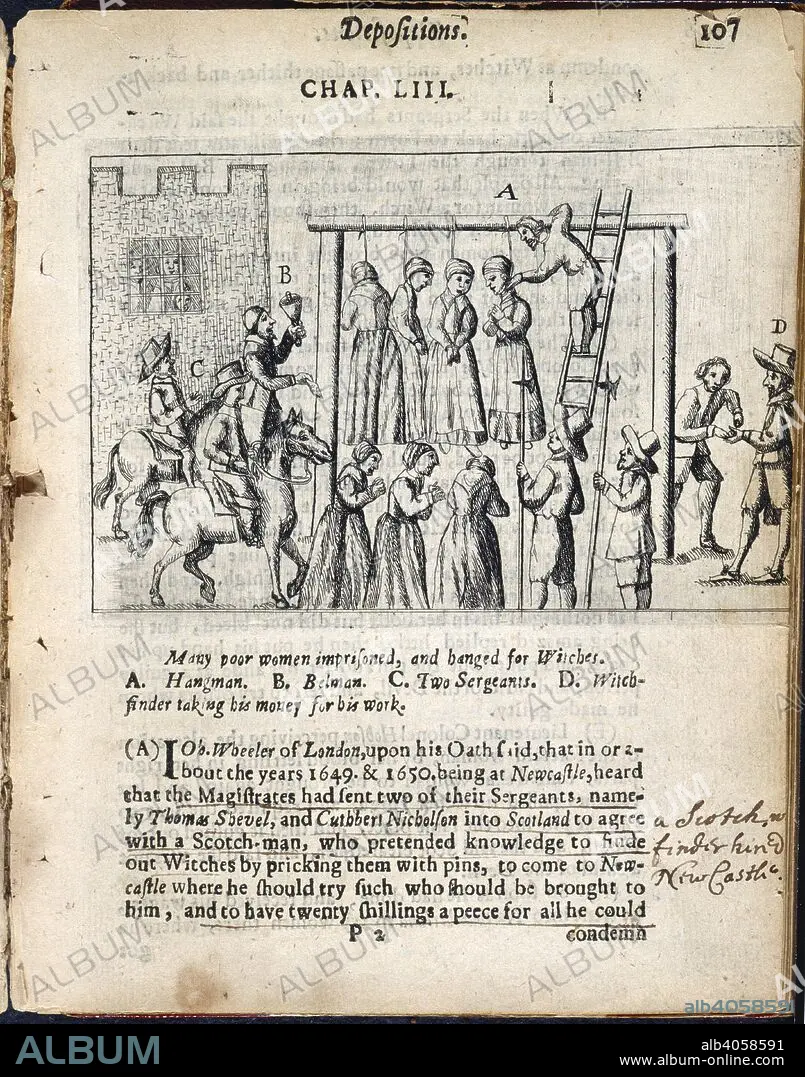 Depoſitions.
107
CHAP. LIII.
A
B
C
D
Many poor women impriſoned, and hanged for Witches.
A. Hangman. B. Belman. C. Two Sergeants. D. Witch-
finder taking his money for his work.
(A) IOh. Wheeler of London, upon his Oath ſaid, that in or a-
bout the years 1649. & 1650. being at Newcaſtle, heard
that the Magiſtrates had ſent two of their Sergeants, name-
ly Thomas Shevel, and Cuthbert Nicholſon into Scotland to agree
with a Scotch-man, who pretended knowledge to finde
out Witches by pricking them with pins, to come to New-
caſtle where he ſhould try ſuch who ſhould be brought to
him, and to have twenty ſhillings a peece for all he could
P 2
condemn
a Scotch, w
finder hired
New Castle
ALBUM
alb4058591
ALBUM
alb4058591
www.album-online.com